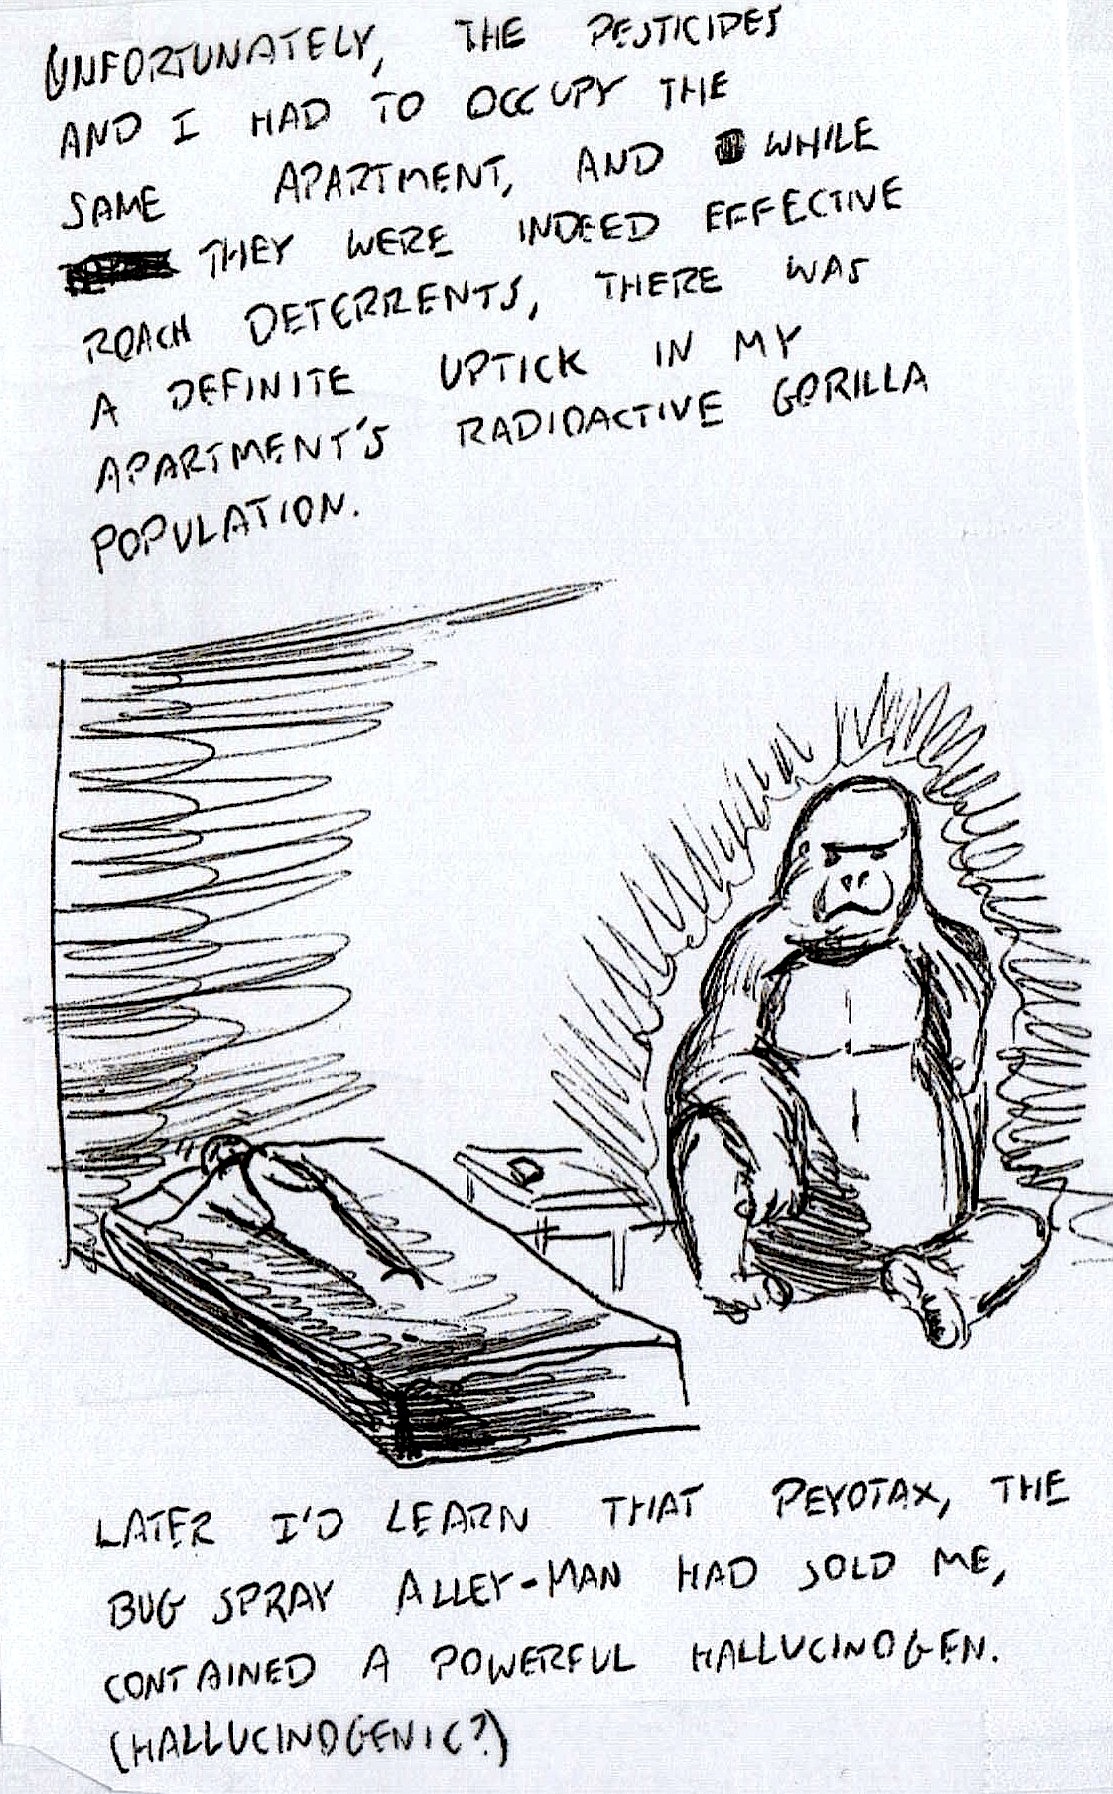 UNFORTUNATELY, THE PESTICIDES
AND I HAD TO OCCUPY THE
SAME APARTMENT, AND WHILE
THEY WERE INDEED EFFECTIVE
ROACH DETERRENTS, THERE WAS
A DEFINITE UPTICK IN MY
APARTMENT'S RADIOACTIVE GORILLA
POPULATION.
LATER I'D LEARN THAT PEYOTAX, THE
BUG SPRAY ALLEY-MAN HAD SOLD ME,
CONTAINED A POWERFUL HALLUCINOGEN.
(HALLUCINOGENIC?)